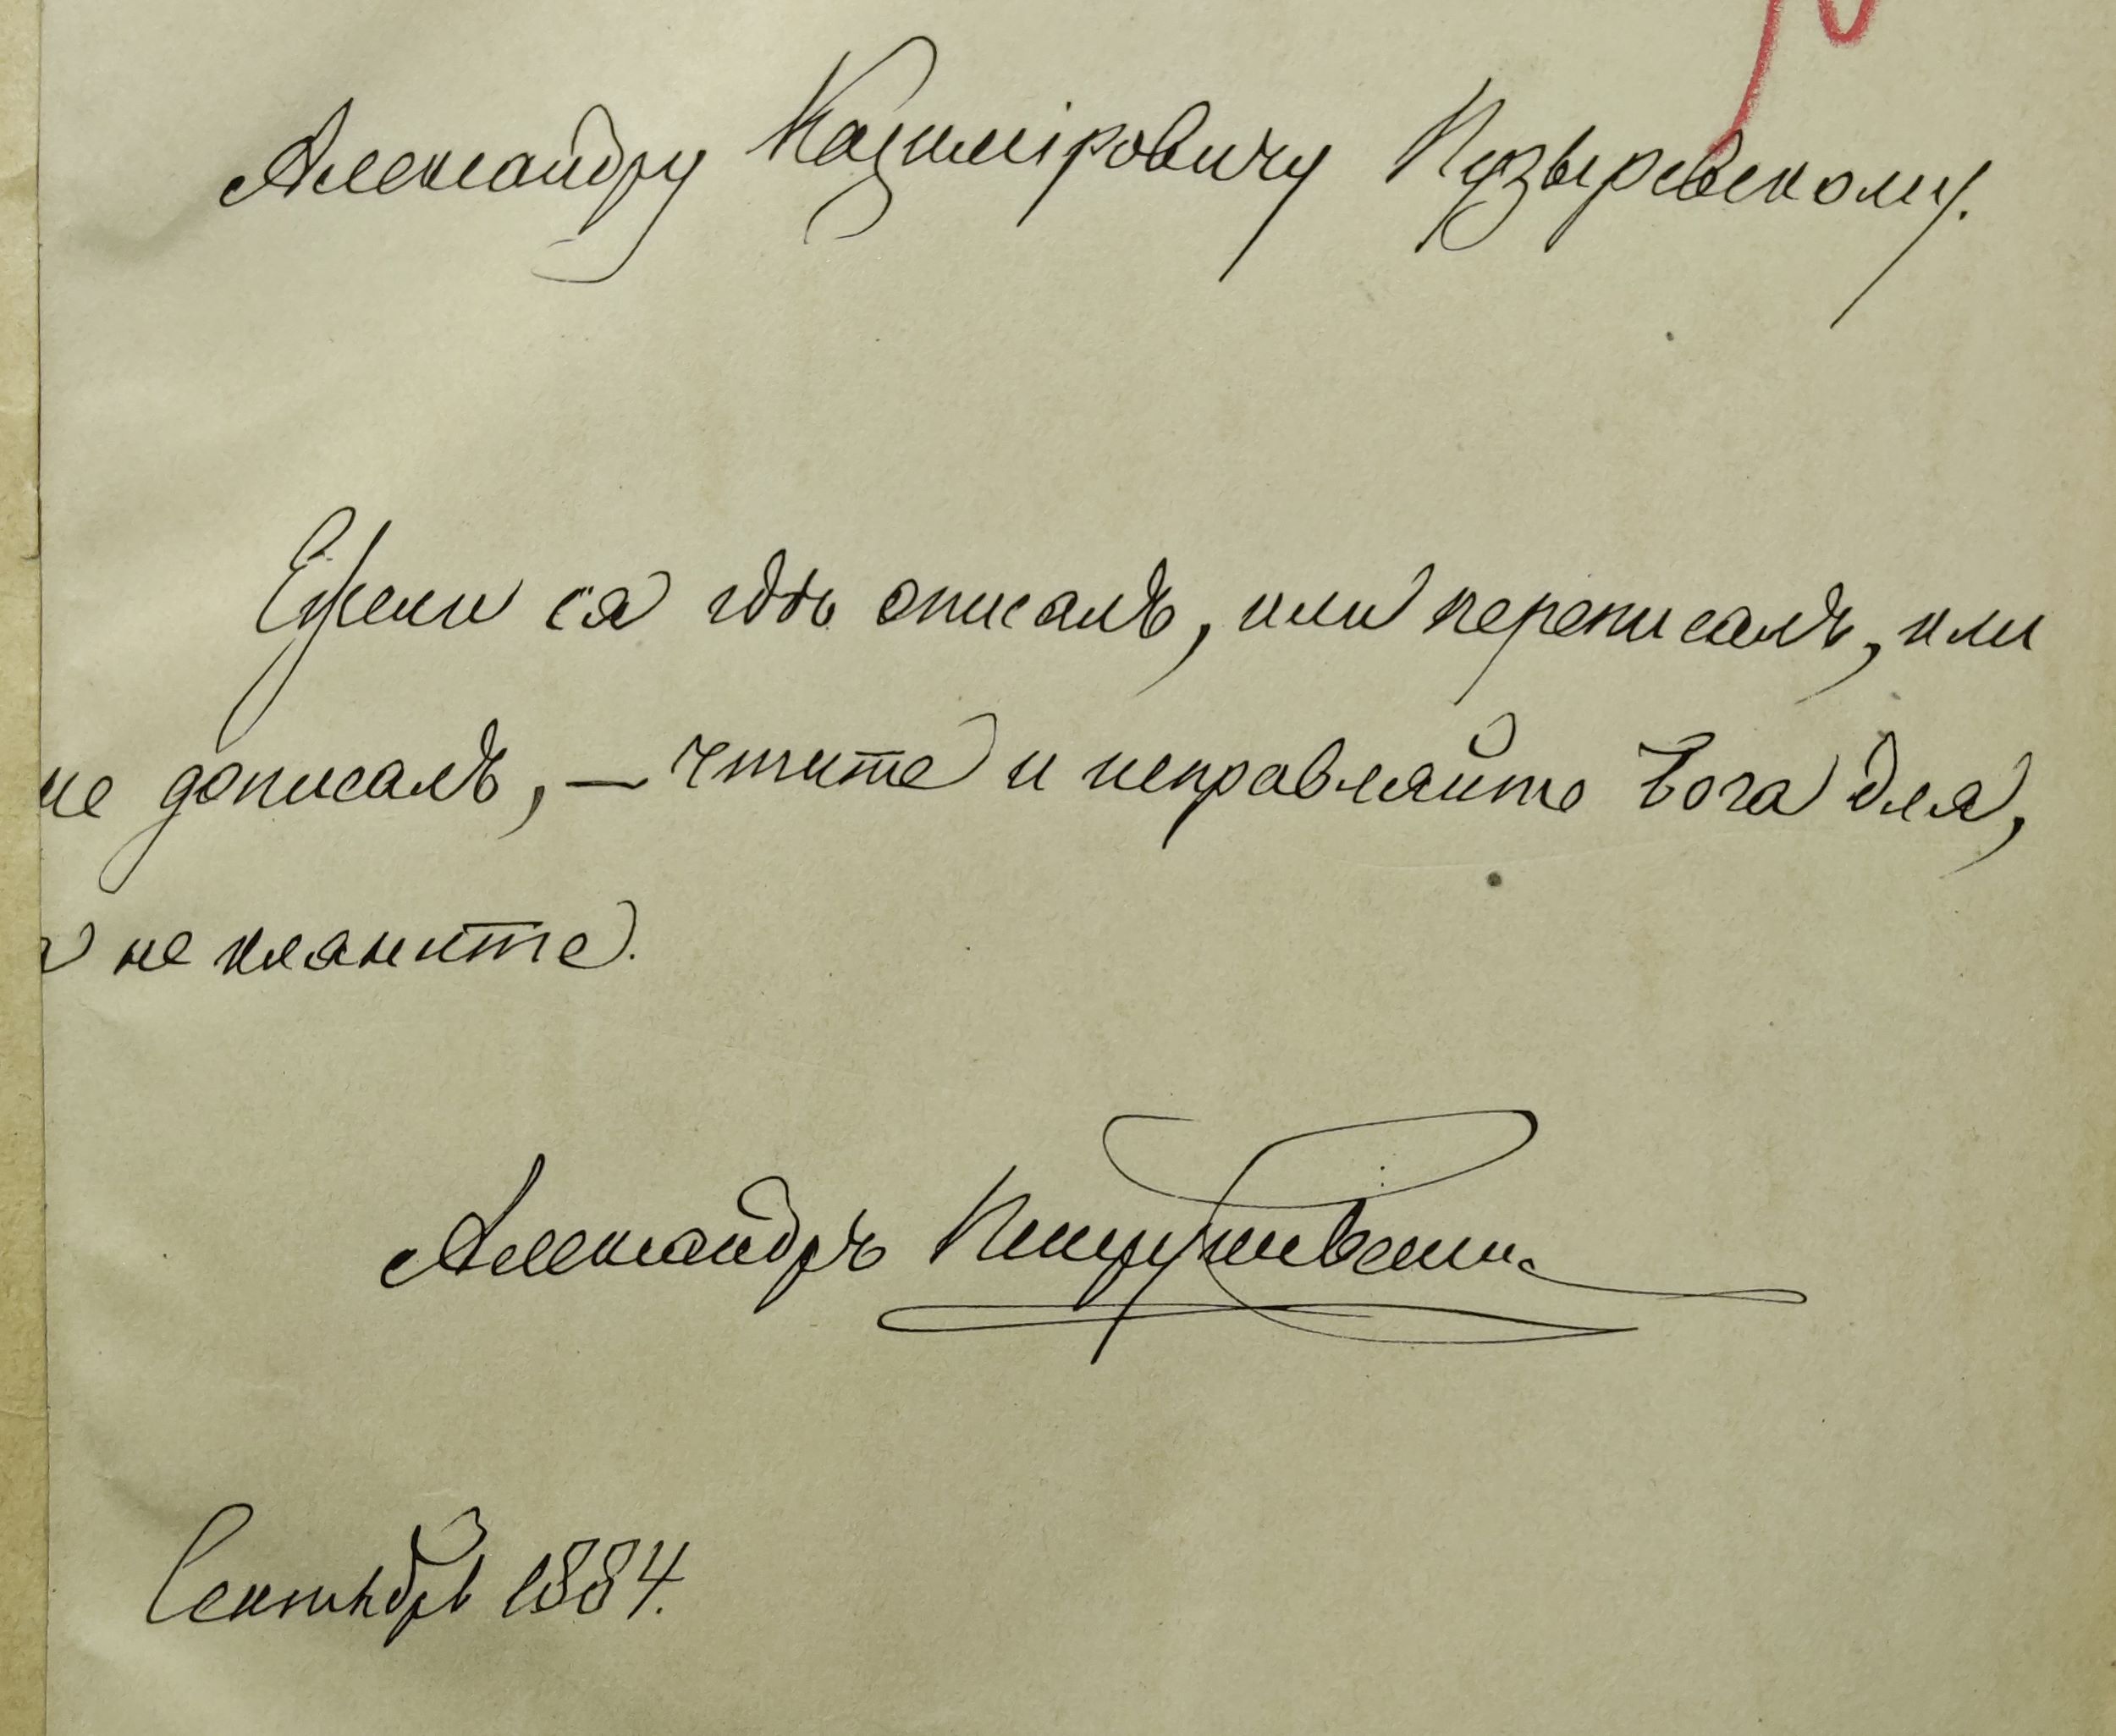 Александру Казимiровичу Пузыревскому.
Ежели ся гдѣ описалъ, или переписалъ, или
не дописалъ, — чтите и исправляйте Бога для,
а не кляните.
Александръ Петрушевскій
Сентябрь 1884.